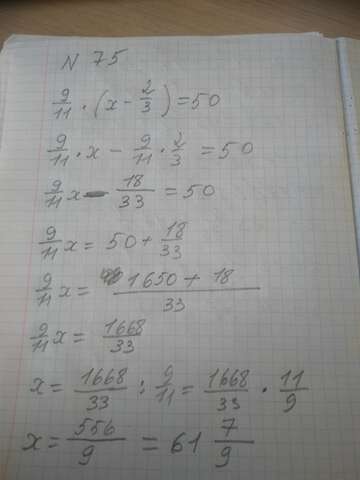 N 75
9/11 · (x - 2/3) = 50
9/11 · x - 9/11 · 2/3 = 50
9/11 x - 18/33 = 50
9/11 x = 50 + 18/33
9/11 x = 1650 + 18 / 33
9/11 x = 1668/33
x = 1668/33 : 9/11 = 1668/33 · 11/9
x = 556/9 = 61 7/9